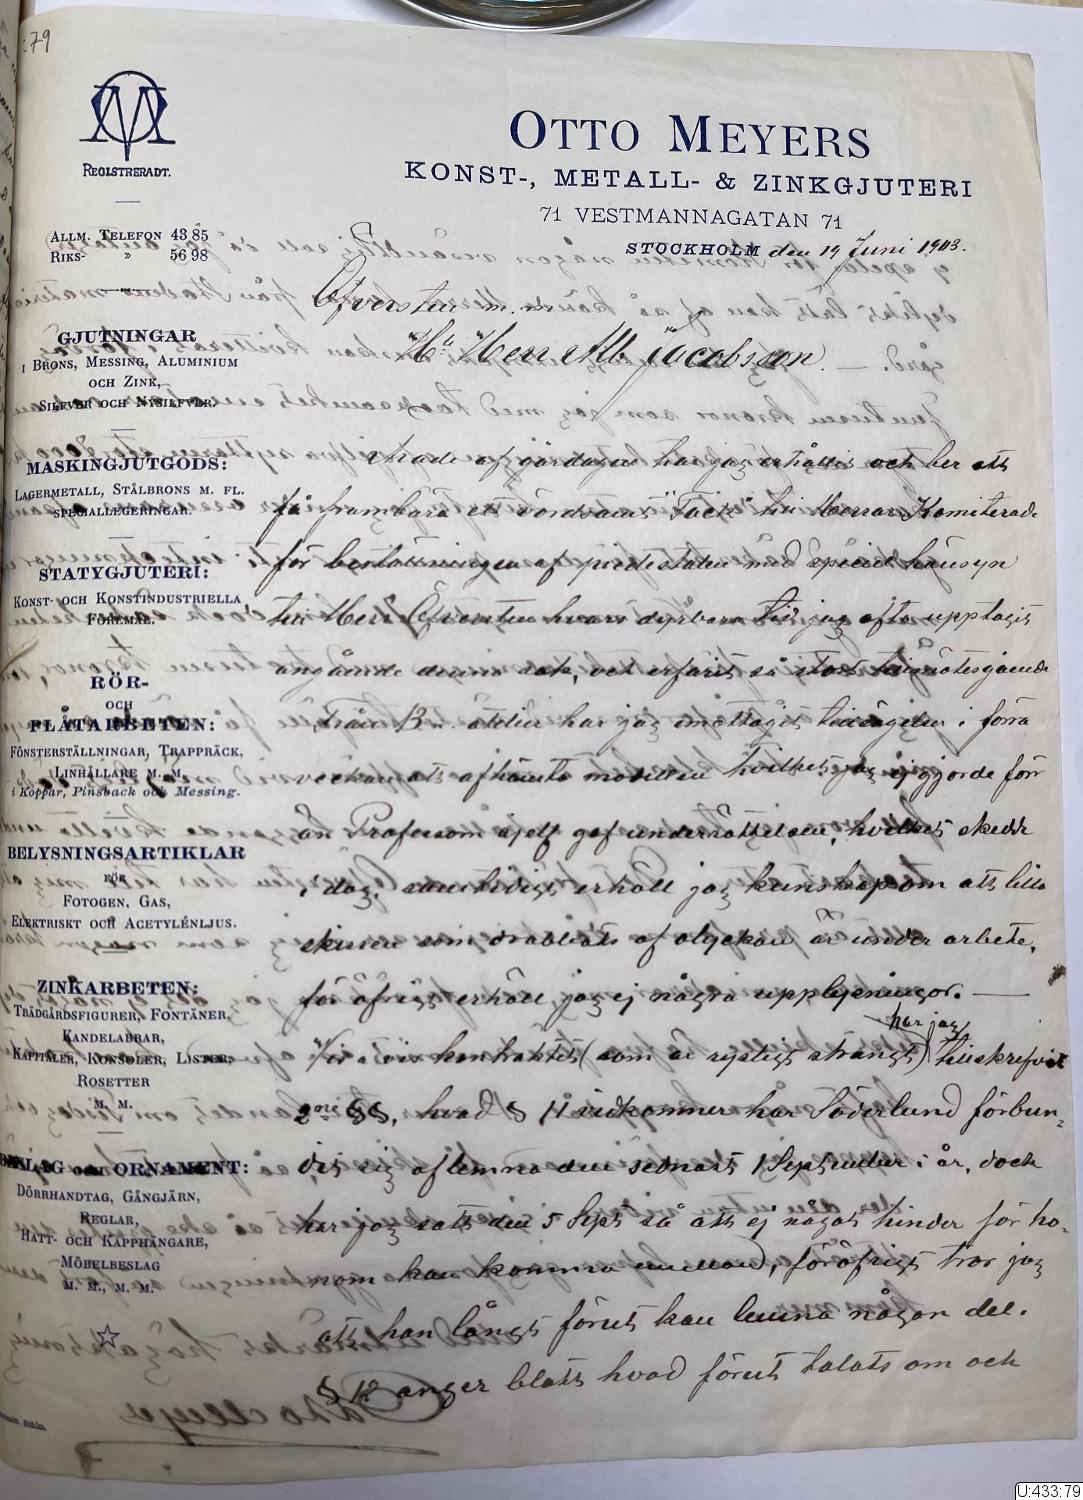 :79
OM
REGISTRERADT.
OTTO MEYERS
KONST-, METALL- & ZINKGJUTERI
71 VESTMANNAGATAN 71
STOCKHOLM den 19 Juni 1903.
ALLM. TELEFON 43 85
RIKS- " 56 98
GJUTNINGAR
I BRONS, MESSING, ALUMINIUM
OCH ZINK,
SILFVER OCH NYSILFVER.
MASKINGJUTGODS:
LAGERMETALL, STÅLBRONS M. FL.
SPECIALLEGERINGAR.
STATYGJUTERI:
KONST- OCH KONSTINDUSTRIELLA
FÖREMÅL.
RÖR-
OCH
PLÅTARBETEN:
FÖNSTERSTÄLLNINGAR, TRAPPRÄCK,
LINHÅLLARE M. M.
i Koppar, Pinsback och Messing.
BELYSNINGSARTIKLAR
FÖR
FOTOGEN, GAS,
ELEKTRISKT OCH ACETYLÉNLJUS.
ZINKARBETEN:
TRÄDGÅRDSFIGURER, FONTÄNER,
KANDELABRAR,
KAPITÄLER, KONSOLER, LISTER,
ROSETTER
M. M.
BESLAG OCH ORNAMENT:
DÖRRHANDTAG, GÅNGJÄRN,
REGLAR,
HATT- OCH KAPPHÄNGARE,
MÖBELBESLAG
M. M., M. M.
Öfversten m. m.
Herr Alb Jacobsson.
af gårdagen har jag erhållit och ber att
få frambära ett vördsamt "Tack" till Herrar Komiterade
för beställningen af piedestalen med speciel hänsyn
till Herr Öfversten hvars dyrbara tid jag ofta upptagit
angående denna sak, och erfarit så stort tillmötesgående
Från B:s atelier har jag emottagit tillsägelse i förra
veckan att afhämta modellen hvilket jag ej gjorde förr
än Professorn sjelf gaf underrättelsen, hvilket skedde
i dag, samtidigt erhöll jag kunskap om att lilla
skissen som drabbats af olyckan är under arbete,
för öfrigt erhöll jag ej några upplysningar. —
har jag
Vis à vis kontraktet (som är rysligt strängt) tillskrifvit
2ne §§, hvad § 11 vidkommer har Söderlund förbun-
dit sig aflemna den senast 1 September i år, dock
har jag satt den 5 Sept så att ej något hinder för ho-
nom kan komma emellan, föröfrigt tror jag
att han långt förut kan lemna någon del.
§ 12 anger blott hvad förut talats om och
U:433:79